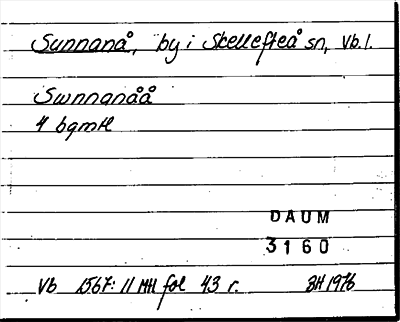 Sunnanå, by i Skellefteå sn, Vb.l.
Swnnanåå
4 bgmtl
DAUM
3160
Vb 1567:11 Mtl fol 43 r. BH 1976